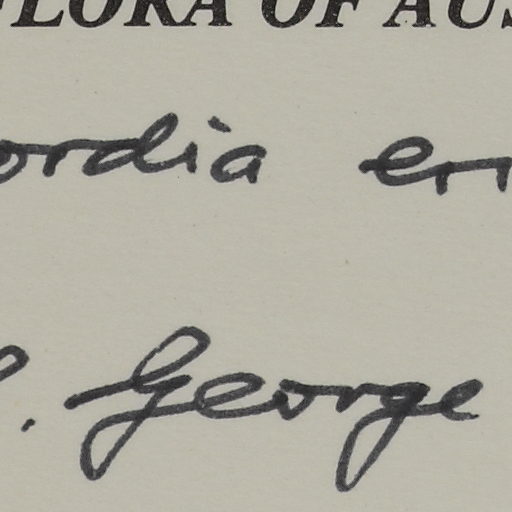 FLORA OF AUS
ordia er
. George